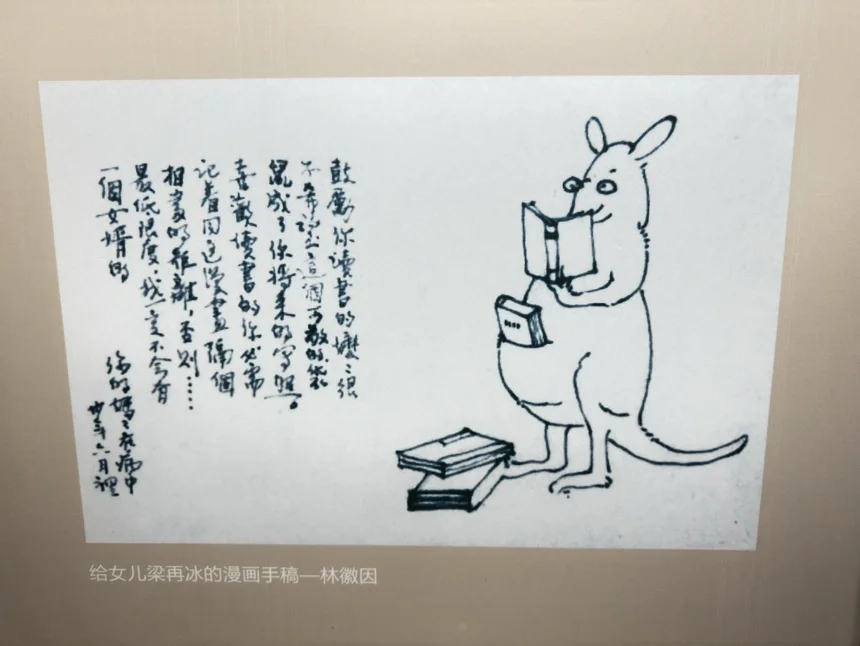 鼓勵你讀書的嬤〻很
不希望這個可敬的袋
鼠成了你將來的寫照。
喜歡讀書的你必需
記着同這漫畫隔個
相當的距離，否則……
最低限度，我一定不會有
一個女婿的
你的媽〻在病中
卅年六月裡
给女儿梁再冰的漫画手稿—林徽因